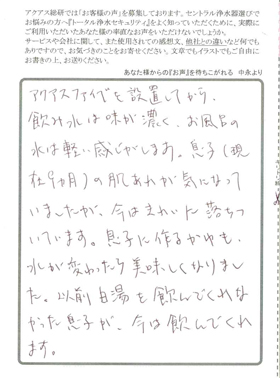 アクアス総研では「お客様の声」を募集しております。セントラル浄水器選びで
お悩みの方へ『トータル浄水セキュリティ』をよく知っていただくために、実際に
ご利用いただいたあなた様の率直なお声をいただけないでしょうか。
サービスや会社に関して、また使用されての感想文、他社との違いなど何でも
ありですので、お気づきのことをお寄せください。文章でもイラストでもご自由に
お書きの上、お送りください。
あなた様からの『お声』を待ちこがれる 中永より
アクアスファイブを設置してから、
飲み水は味が濃く、お風呂の
水は軽い感じがします。息子(現
在9ヵ月)の肌あれが気になって
いましたが、今はきれいに落ちつ
いています。息子に作るかゆも、
水が変わったら美味しくなりまし
た。以前白湯を飲んでくれな
かった息子が、今は飲んでくれ
ます。